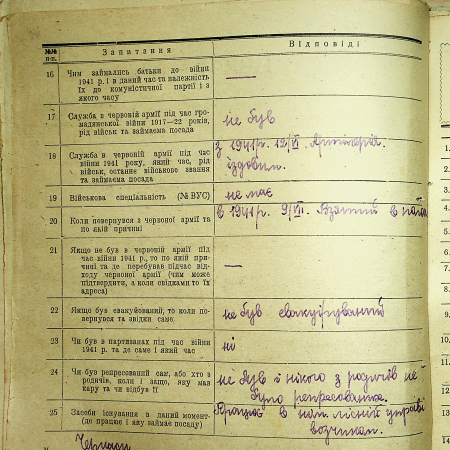 №№ п-п. Запитання Відповіді
16 Чим займались батьки до війни
1941 р. і в даний час та належність
їх до комуністичної партії і з
якого часу
—
17 Служба в червоній армії під час гро-
мадянської війни 1917—22 років,
рід військ та займаєма посада
не був
18 Служба в червоній армії під час
війни 1941 року, який час, рід
військ, останнє військове звання
та займаєма посада
з 1941 р. 12/VI Артилерія.
їздовим.
19 Військова спеціальність (№ ВУС)
не має
20 Коли повернувся з червоної армії та
по якій причині
в 1941 р. 9/VIII. Взятий в
21 Якщо не був в червоній армії під
час війни 1941 р., то по якій при-
чині та де перебував підчас від-
ходу червоної армії (чим може
підтвердити, а коли свідками то їх
адреса)
—
22 Якщо був евакуйований, то коли по-
вернувся та звідки саме
не був евакуїруваний
23 Чи був в партизанах під час війни
1941 р. та де саме і який час
ні
24 Чи був репресований сам, або хто з
родичів, коли і защо, яку мав
кару та чи відбув її
не був і нікого з родичів не
було репресовано.
25 Засоби існування в даний момент
(де працює і яку займає посаду)
Працює в лісній управі
возчиком.
1.
2.
3.
4.
5.
6.
7.
8.
9.
10
11
12.
13.
14